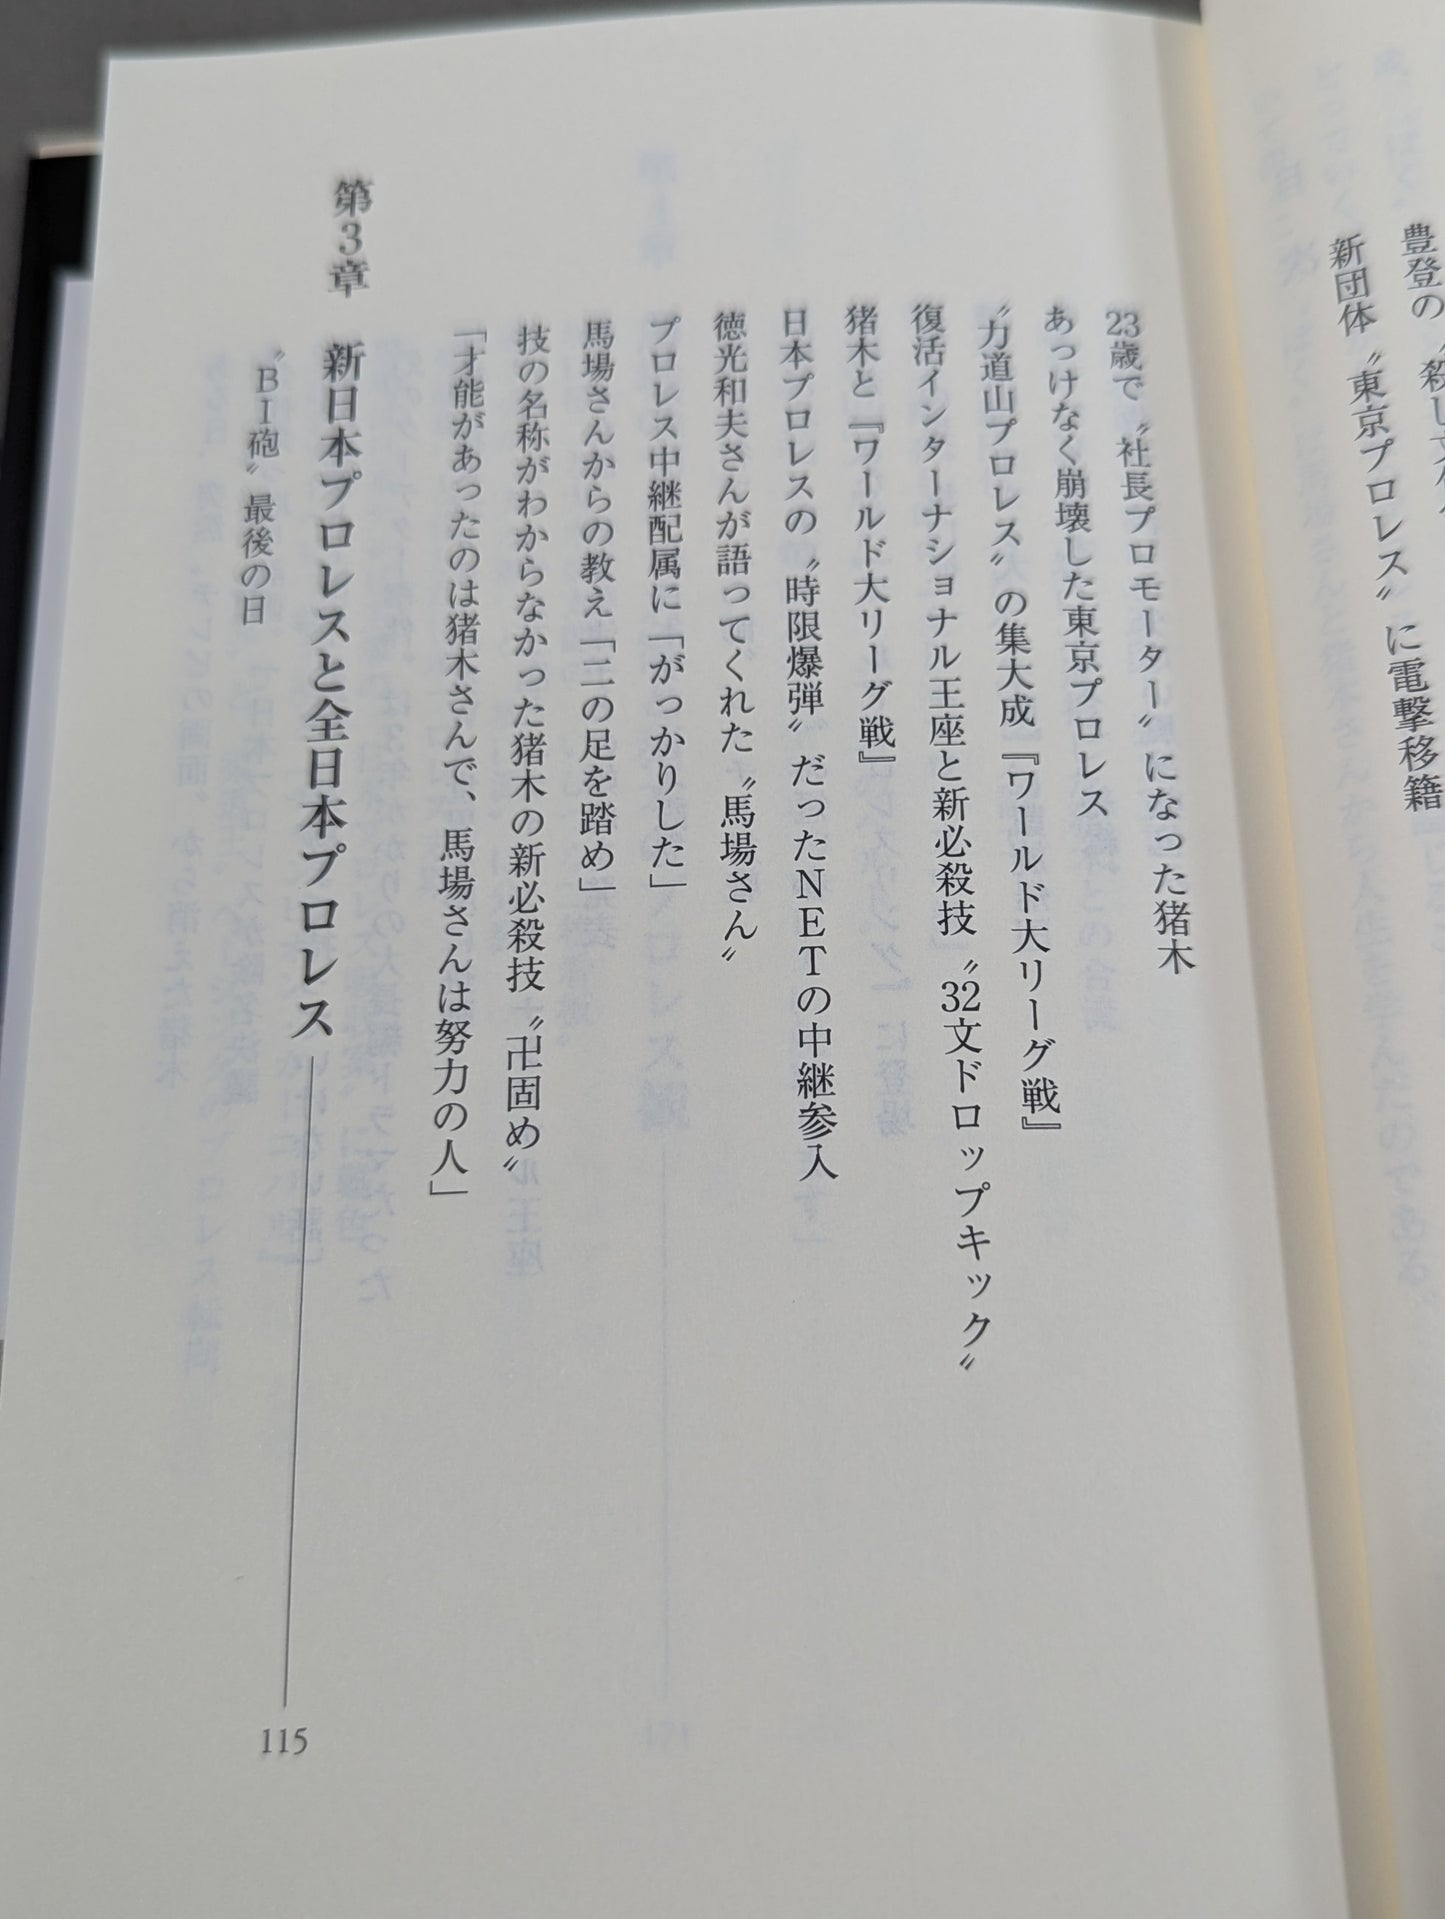 新団体〝東京プロレス〟に電撃移籍
23歳で〝社長プロモーター〟になった猪木
あっけなく崩壊した東京プロレス
〝力道山プロレス〟の集大成『ワールド大リーグ戦』
復活インターナショナル王座と新必殺技〝32文ドロップキック〟
猪木と『ワールド大リーグ戦』
日本プロレスの〝時限爆弾〟だったNETの中継参入
徳光和夫さんが語ってくれた〝馬場さん〟
プロレス中継配属に「がっかりした」
馬場さんからの教え「二の足を踏め」
技の名称がわからなかった猪木の新必殺技〝卍固め〟
「才能があったのは猪木さんで、馬場さんは努力の人」
第3章 新日本プロレスと全日本プロレス 115
〝BI砲〟最後の日